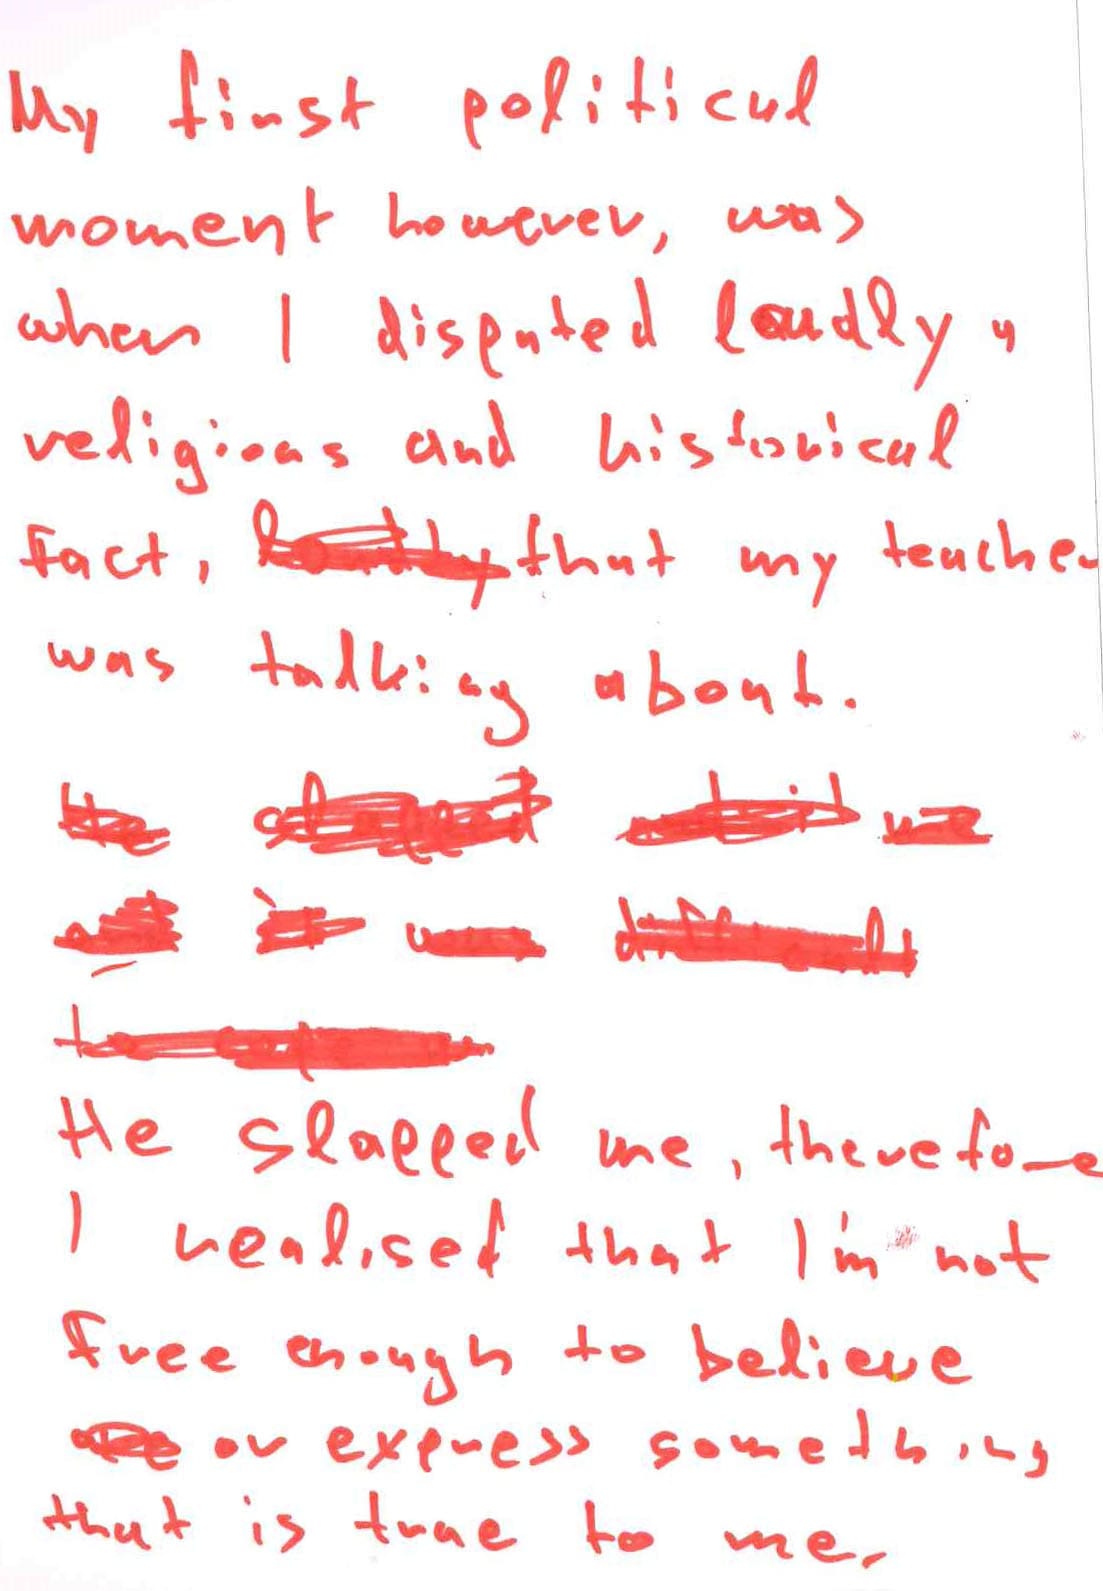 My first political
moment however, was
when I disputed loudly a
religious and historical
fact, that my teacher
was talking about.
He slapped me
difficult
He slapped me, therefore
I realised that I'm not
free enough to believe
or express something
that is true to me.